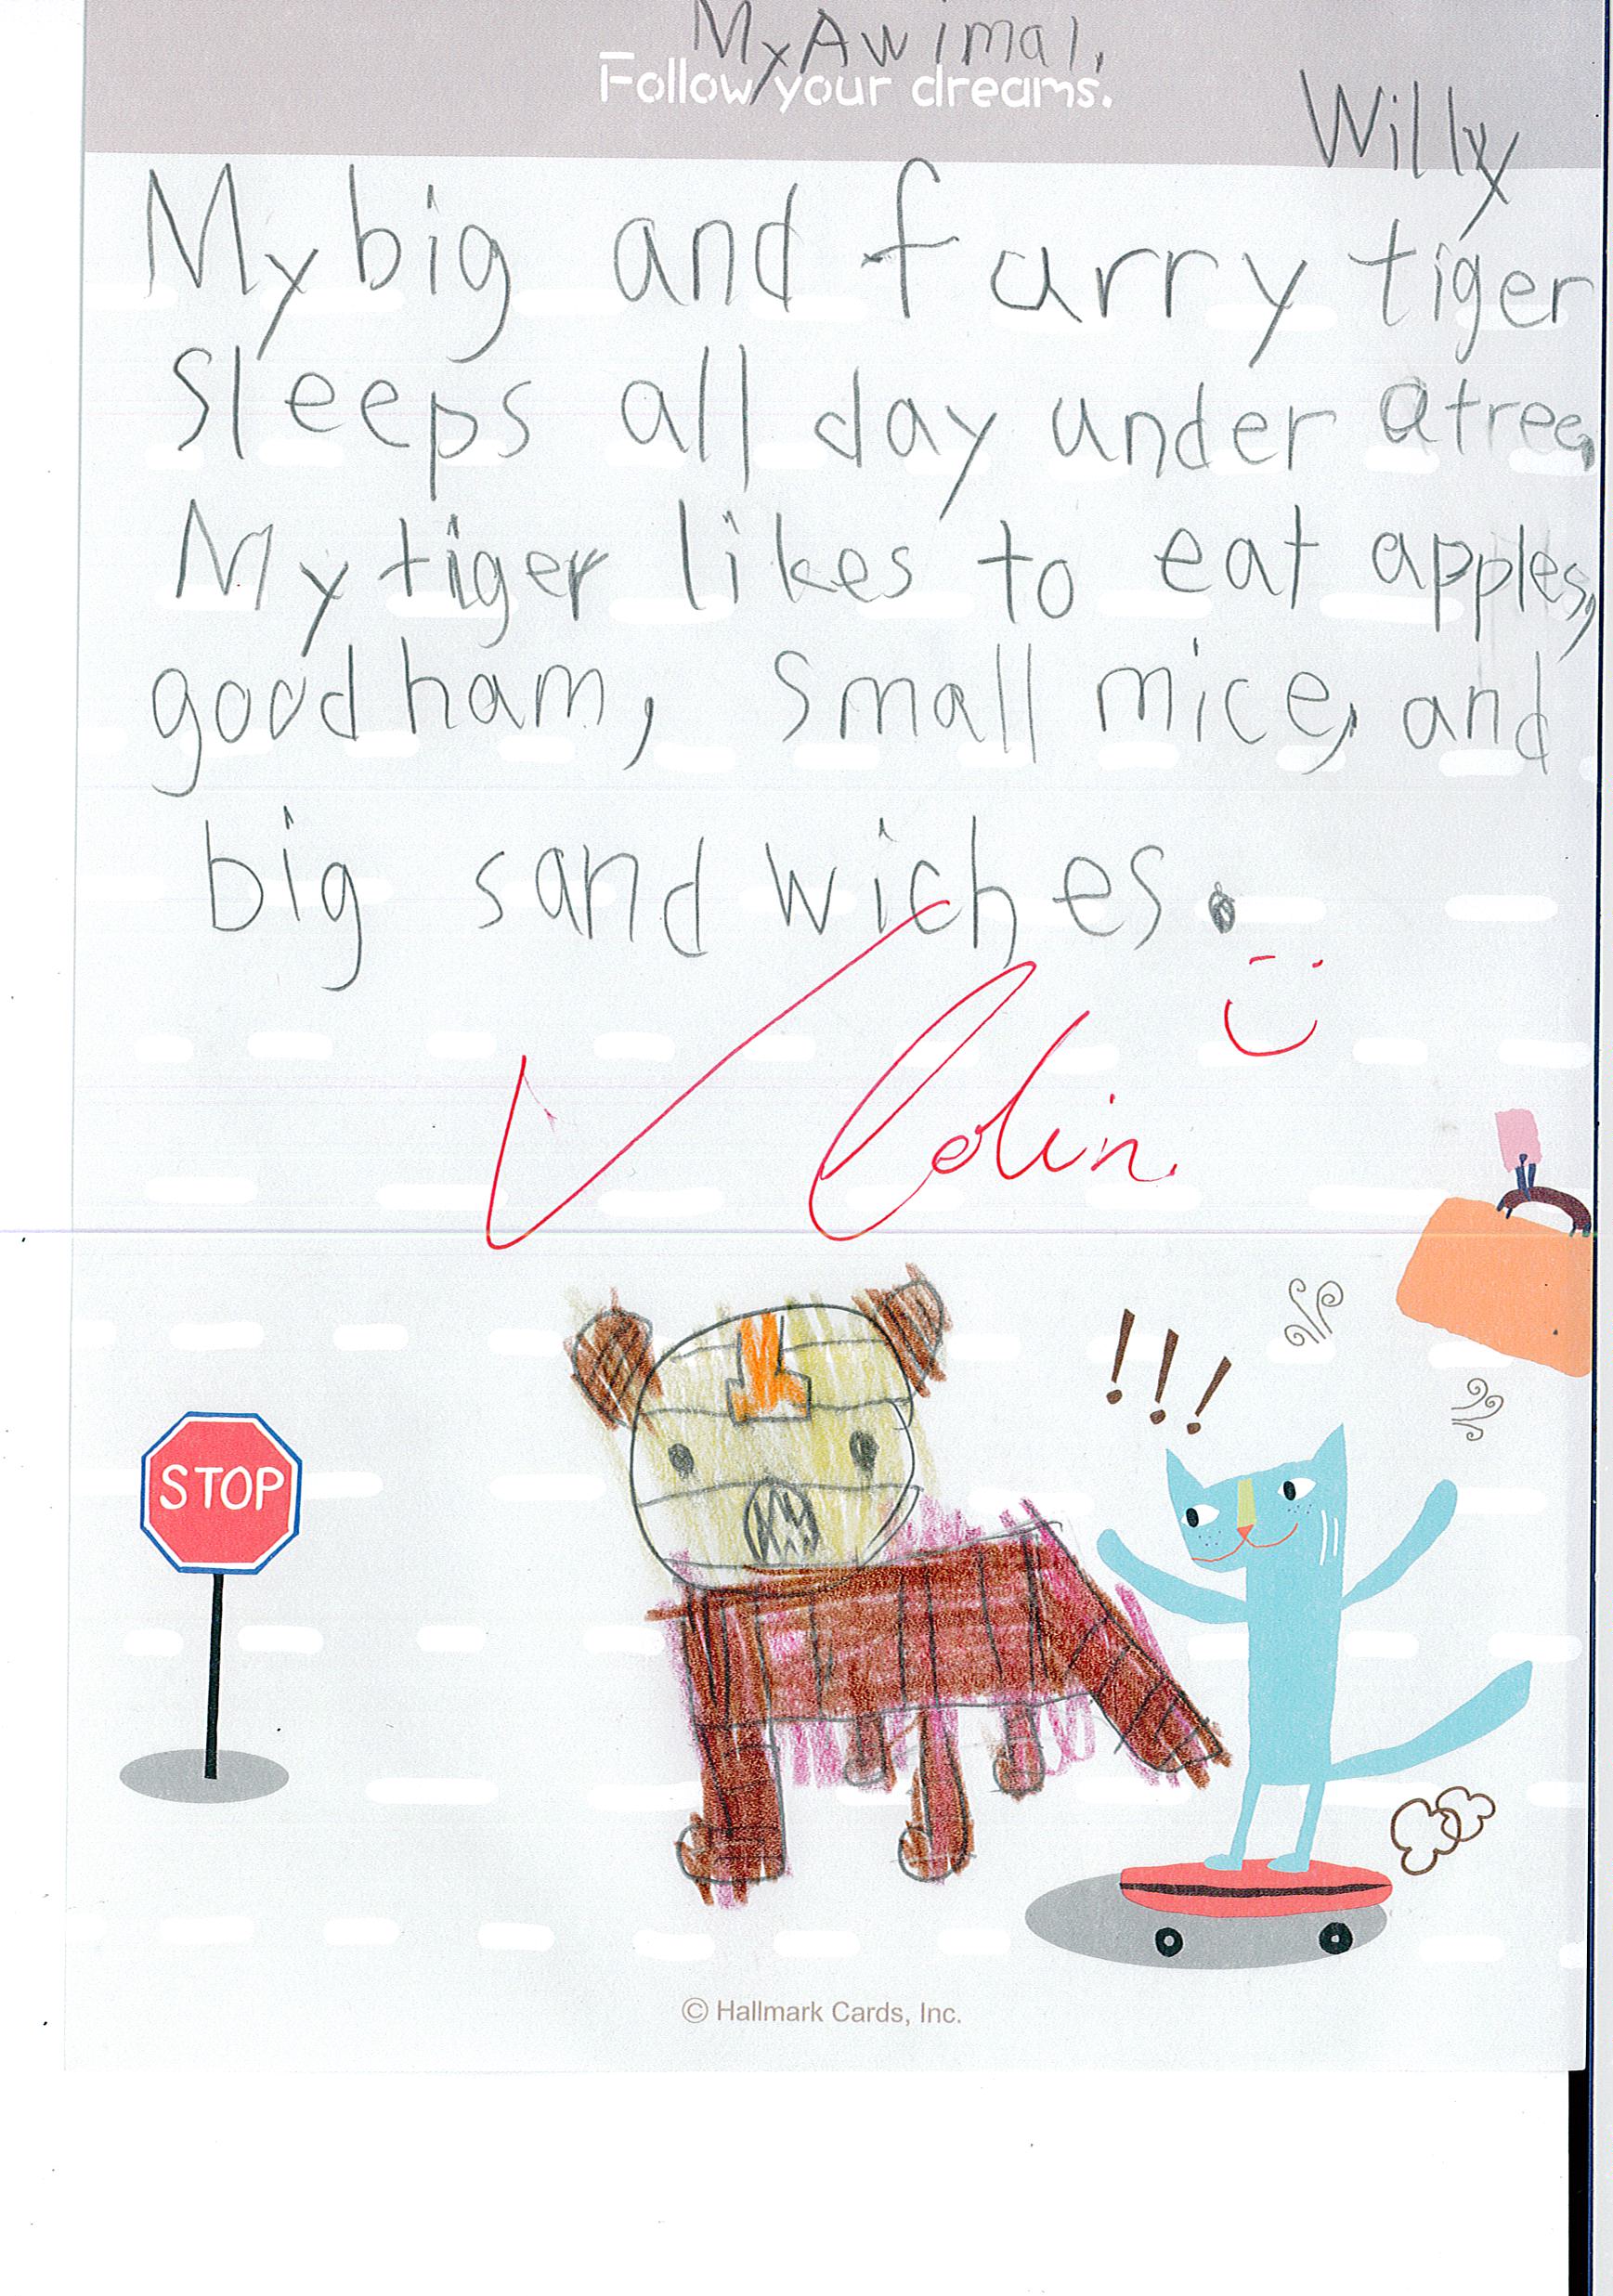 My Awimal.
Follow your dreams.
Willy
My big and furry tiger
sleeps all day under a tree.
My tiger likes to eat apples,
good ham, small mice, and
big sandwiches.
Colin
STOP
!!!
© Hallmark Cards, Inc.